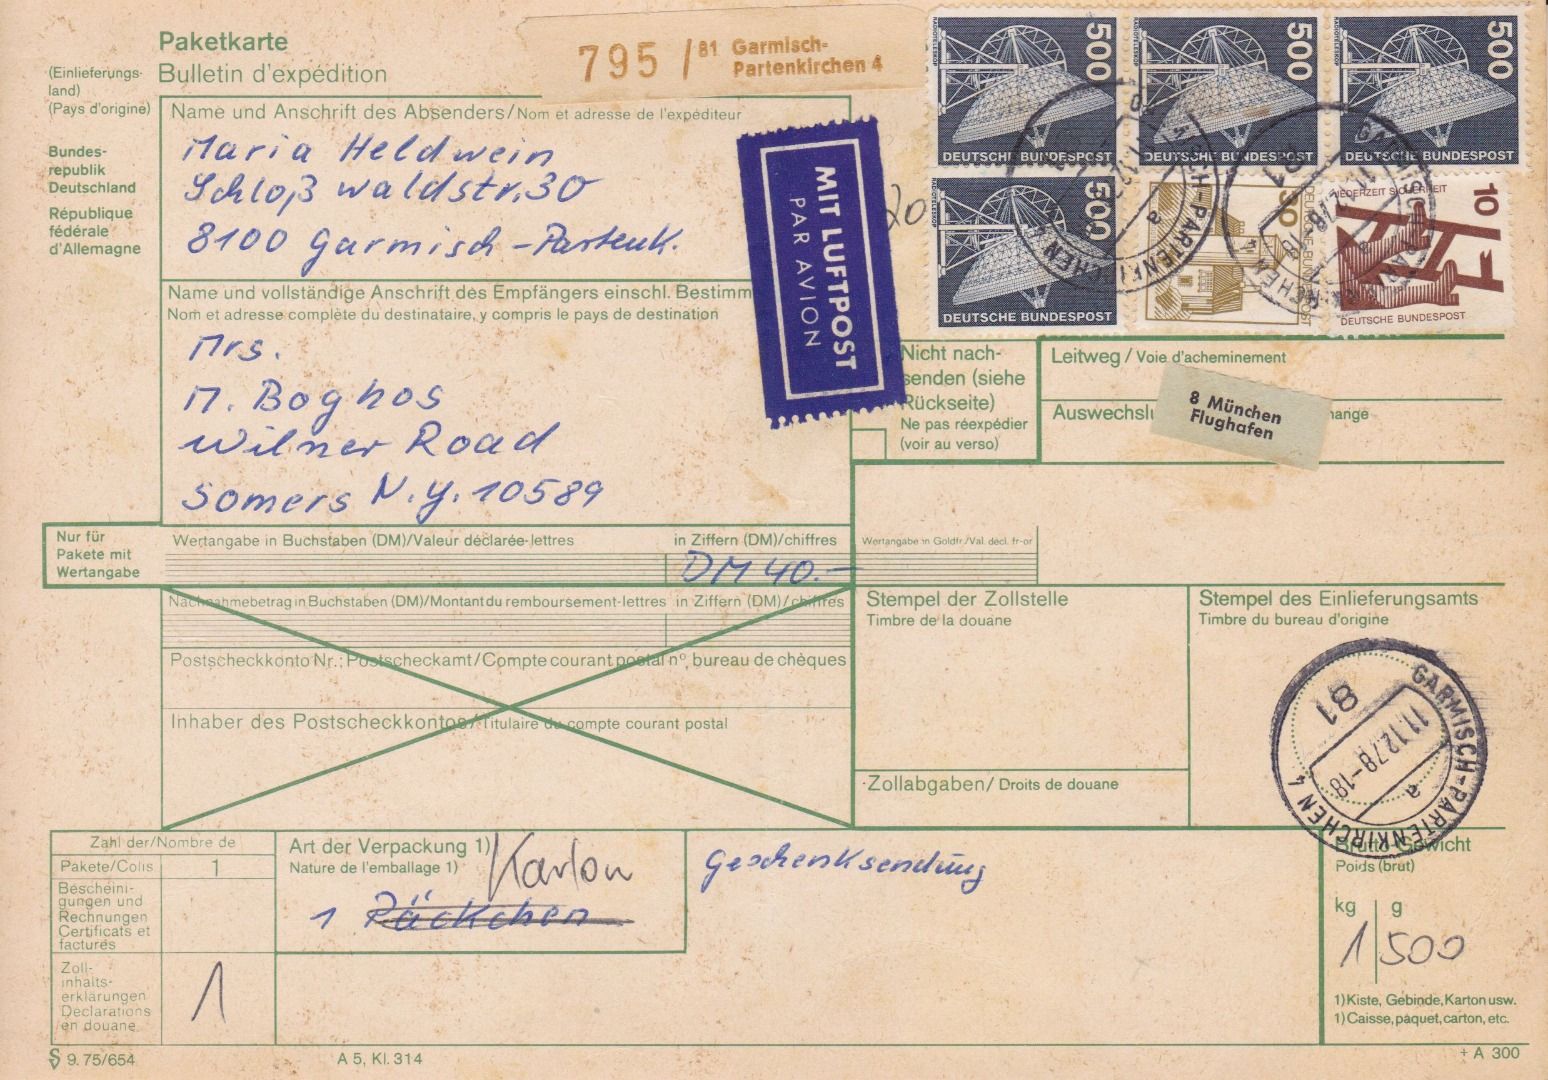 Paketkarte
Bulletin d'expédition
(Einlieferungs-
land)
(Pays d'origine)
Bundes-
republik
Deutschland
République
fédérale
d'Allemagne
795 / 81 Garmisch-
Partenkirchen 4
Name und Anschrift des Absenders/Nom et adresse de l'expéditeur
Maria Heldwein
Schloß waldstr. 30
8100 Garmisch-Partenk.
MIT LUFTPOST
PAR AVION
20
500
RADIOTELESKOP
DEUTSCHE BUNDESPOST
500
RADIOTELESKOP
DEUTSCHE BUNDESPOST
500
RADIOTELESKOP
DEUTSCHE BUNDESPOST
500
RADIOTELESKOP
DEUTSCHE BUNDESPOST
DEUTSCHE BUNDESPOST
JEDERZEIT SICHERHEIT
10
DEUTSCHE BUNDESPOST
Name und vollständige Anschrift des Empfängers einschl. Bestimm
Nom et adresse complète du destinataire, y compris le pays de destination
Mrs.
M. Boghos
Wilner Road
Somers N.Y. 10589
Nicht nach-
senden (siehe
Rückseite)
Ne pas réexpédier
(voir au verso)
Leitweg / Voie d'acheminement
Auswechslu
hange
8 München
Flughafen
Nur für
Pakete mit
Wertangabe
Wertangabe in Buchstaben (DM)/Valeur déclarée-lettres
in Ziffern (DM)/chiffres
DM 40.-
Wertangabe in Goldfr./Val. décl. fr-or
Nachnahmebetrag in Buchstaben (DM)/Montant du remboursement-lettres
in Ziffern (DM)/chiffres
Postscheckkonto Nr.; Postscheckamt/Compte courant postal n°, bureau de chèques
Inhaber des Postscheckkontos/Titulaire du compte courant postal
Stempel der Zollstelle
Timbre de la douane
Zollabgaben/ Droits de douane
Stempel des Einlieferungsamts
Timbre du bureau d'origine
81
GARMISCH-PARTENKIRCHEN 4
11.12.78-18
a
Zahl der/Nombre de
Pakete/Colis
1
Bescheini-
gungen und
Rechnungen
Certificats et
factures
Zoll-
inhalts-
erklärungen
Declarations
en douane
1
Art der Verpackung 1)
Nature de l'emballage 1)
Karton
1 Päckchen
Geschenksendung
Brutto-Gewicht
Poids (brut)
kg g
1 500
1) Kiste, Gebinde, Karton usw.
1) Caisse, paquet, carton, etc.
9.75/654
A 5, Kl. 314
+ A 300